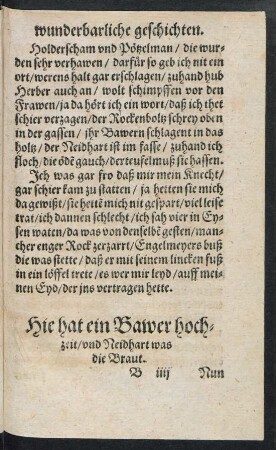 wunderbarliche geschichten.
Holderscham vnd Pötzelman / die wur-
den sehr verhawen / darfür so geb ich nit ein
ort / werens halt gar erschlagen / zuhand hub
Herber auch an / wolt schimpffen vor den
Frawen / ja da hört ich ein wort / daß ich thet
schier verzagen / der Rockenboltz schrey oben
in der gassen / jhr Bawern schlagent in das
holtz / der Neidhart ist im fasse / zuhand ich
floch / die ödē gauch / der teufel muß sie hassen.
Ich was gar fro daß mir mein Knecht /
gar schier kam zu statten / ja hetten sie mich
da gewißt / sie hetē mich nit gespart / viel leise
trat / ich dannen schlecht / ich sah vier in Ey-
sen waten / da was von denselbē gesten / man-
cher enger Rock zerzarrt / Engelmeyers buß
die was stette / daß er mit seinem lincken fuß
in ein löffel trete / es wer mir leyd / auff mei-
nen Eyd / der jns vertragen hette.
Hie hat ein Bawer hoch-
zeit / vnd Neidhart was
die Braut.
B iiij Nun